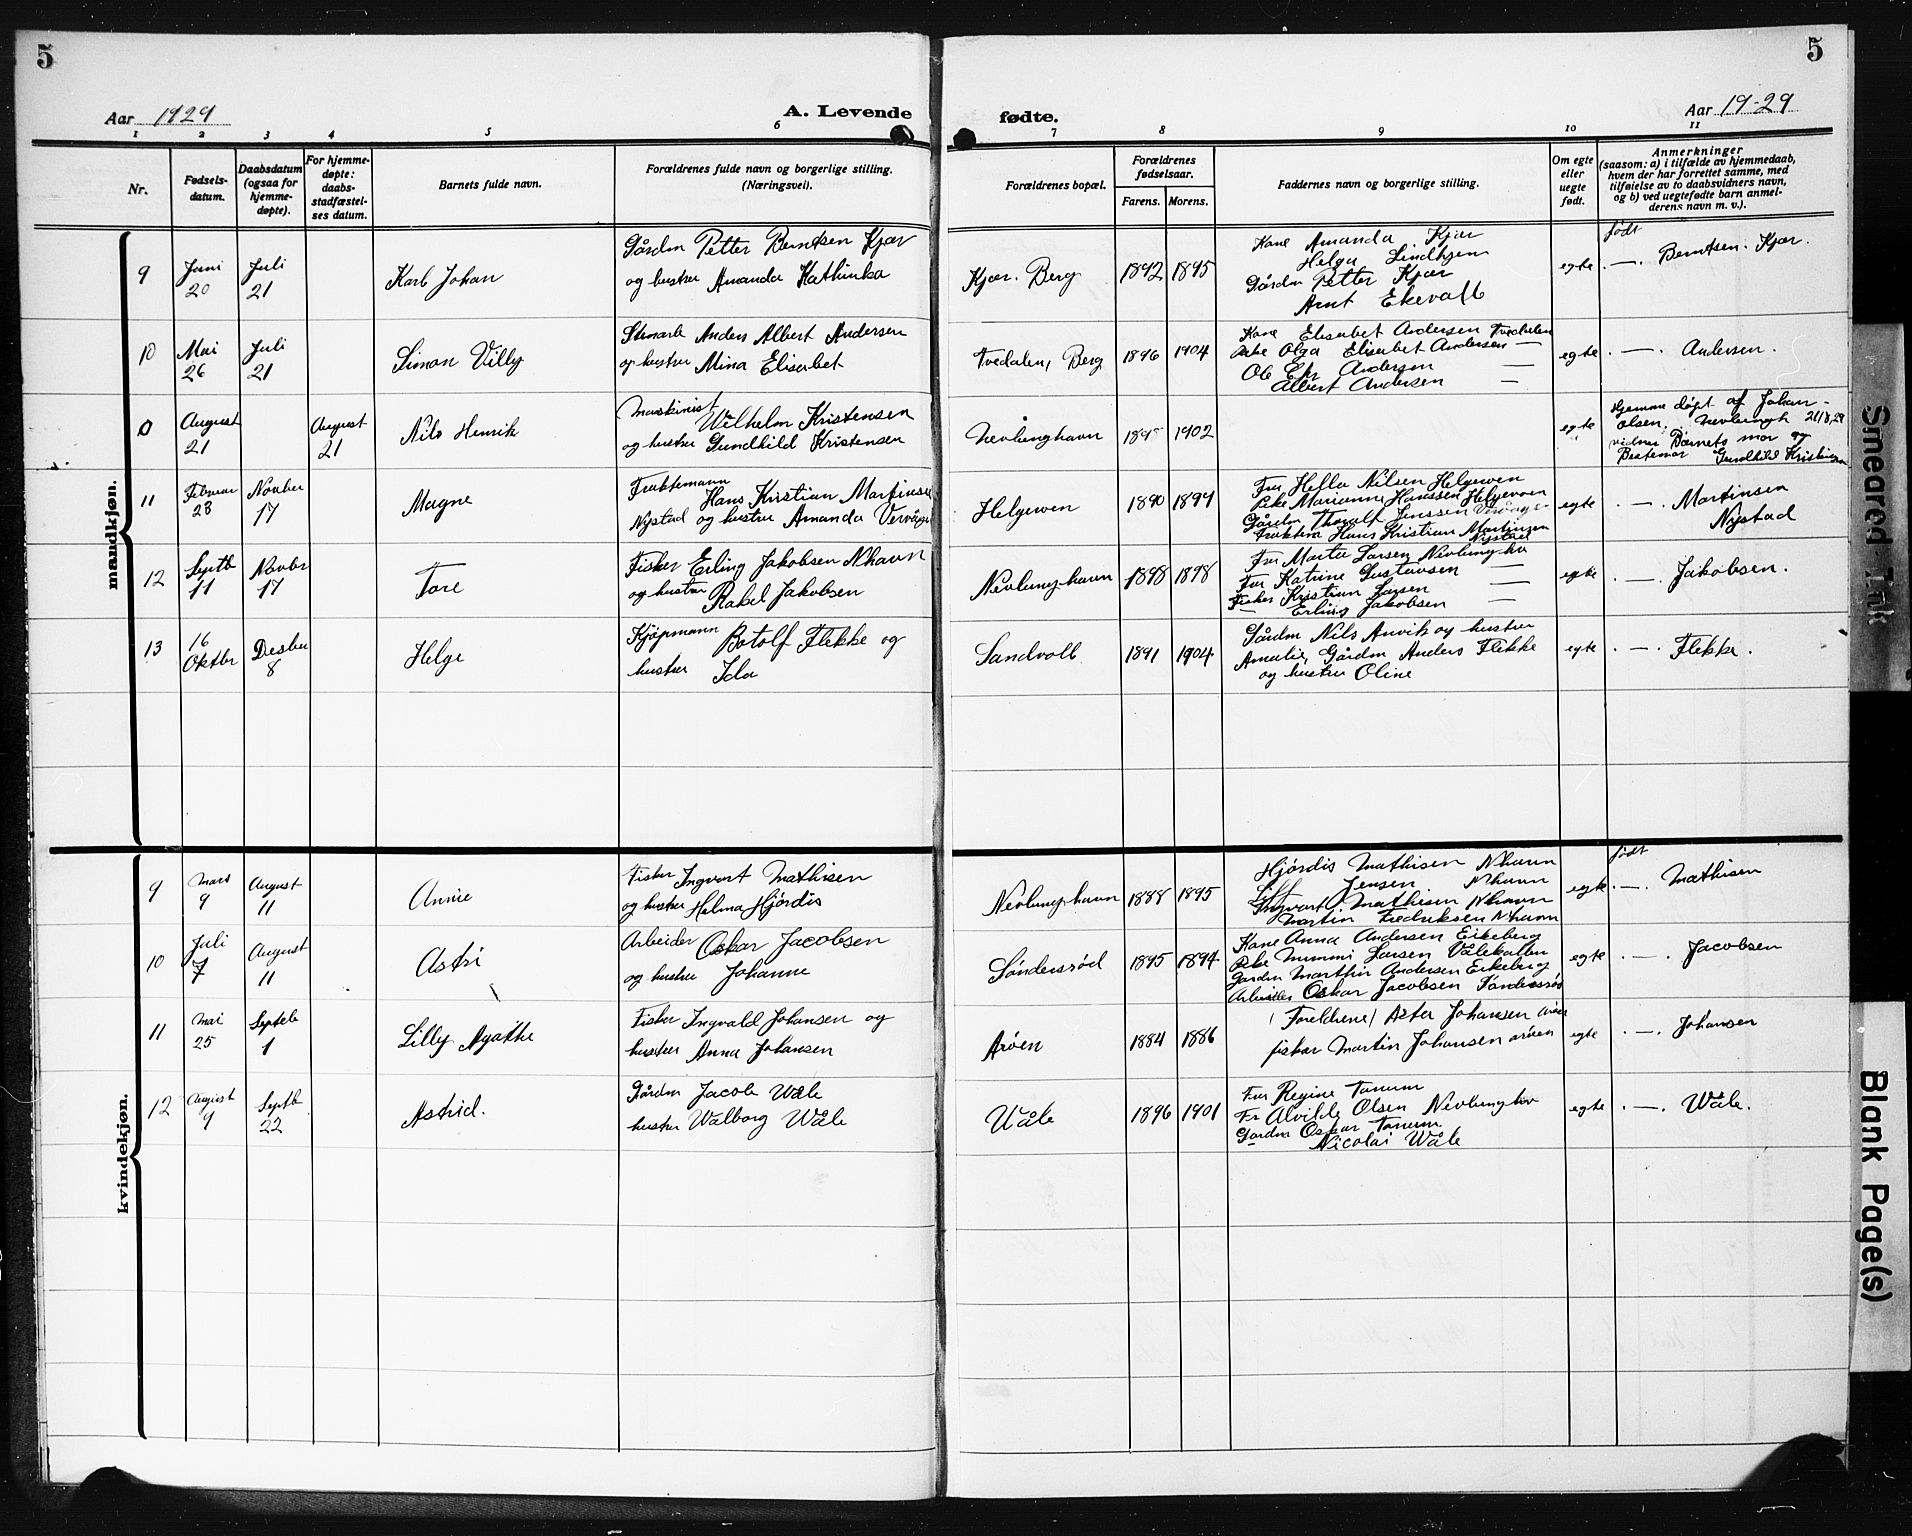 5
5
Aar 1929
A. Levende
fødte.
Aar 19-29
1 2 3 4 5 6 7 8 9 10 11
Nr.
Fødsels-
datum.
Daabsdatum
(ogsaa for
hjemme-
døpte).
For hjemme-
døpte:
daabs-
stadfæstel-
ses datum.
Barnets fulde navn.
Forældrenes fulde navn og borgerlige stilling.
(Næringsvei).
Forældrenes bopæl.
Forældrenes
fødselsaar.
Farens. Morens.
Faddernes navn og borgerlige stilling.
Om egte
eller
uegte
født.
Anmerkninger
(saasom: a) i tilfælde av hjemmedaab,
hvem der har forrettet samme, med
tilføielse av to daabsvidners navn,
og b) ved uegtefødte barn anmel-
derens navn m. v.).
mandkjøn.
9
Juni
20
Juli
21
Karl Johan
Gårdm Petter Berntsen Kjær
og hustru Amanda Kathinka
Kjær. Berg
1892 1895
Kone Amanda Kjær
Helga Lindhjem
Gårdm Petter Kjær
Arnt Ekevall
egte
født
. — . Berntsen. Kjær.
10
Mai
26
Juli
21
Simon Villy
Anders Albert Andersen
og hustru Mina Elisabet
Tvedalen, Berg
1896 1904
Kone Elisabet Andersen Tvedalen
Olga Elisabet Andersen —
Ole Andersen —
Albert Andersen —
egte
. — . Andersen.
0
August
21
August
21
Nils Henrik
Maskinist
Wilhelm Kristensen
og hustru Gundhild Kristensen
Nevlunghavn
1902
egte
Hjemme døpt af Johan
Olsen, Nevlungh 21/8,29
vidner Barnets mor og
Bestemor Gundhild Kristensen
11
Februar
23
Novber
17
Magne
Fraktemann
Hans Kristian Martinsen
Nystad og hustru Amanda
Helgeroen
1890 1894
Fru Hella Nilsen Helgeroen
Pike Marianne Hanssen Helgeroen
Gårdm Thoralf Jenssen
Hans Kristian Martinsen
Nystad
egte
. — . Martinsen
Nystad
12
Septb
11
Novbr
17
Tore
Fisker Erling Jakobsen Nhavn
og hustru
Rakel Jakobsen
Nevlunghavn
1898 1898
Fru Marta Larsen Nevlungha
Fru Katrine Gustavsen —
Fisker Kristian Larsen —
— Erling Jakobsen —
egte
. — . Jakobsen.
13
16
Oktbr
Desber
8
Helge
Kjøpmann Botolf Flekke og
hustru Ida
Sandvoll
1891 1904
Gårdm Nils Anvik og hustru
Amalie, Gårdm Anders Flekke
og hustru Oline
egte
. — . Flekke.
kvindekjøn.
9
Mars
9
August
11
Annie
Fisker Ingvart Mathisen
og hustru Helma Hjördis
Nevlunghavn
1888 1895
Hjördis Mathisen Nhavn
Jensen Nhavn
Ingvart Mathisen Nhavn
Martin Fredriksen Nhavn
egte
født
. — . Mathisen
10
Juli
7
August
11
Astri
Arbeider Oskar Jacobsen
og hustru Johanne
Sønderrød
1895 1894
Kone Anna Andersen Eikeberg
Mimmi Larsen
Gårdm Marthin Andersen Eikeberg
Arbeider Oskar Jacobsen
egte
. — . Jacobsen
11
Mai
25
Septeb
1
Lilly Agathe
Fisker Ingvald Johansen og
hustru Anna Johansen
Arøen
1884 1886
(Foreldrene) Johansen
fisker Martin Johansen arøen
egte
. — . Johansen
12
August
9
Septb
22
Astrid.
Gårdm Jacob Wåle
hustru Walborg Wåle
Wåle
1896 1901
Fru Regine Tanum
Fr Alvilde Olsen Nevlunghav
Gårdm Oskar Tanum
Nicolai Wåle
egte
. — . Wåle.
Smeared Ink
Blank Page(s)